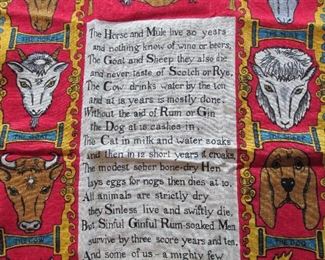 The Horse and Mule live 30 years
and nothing know of wine or beers,
The Goat and Sheep they also die
and never taste of Scotch or Rye.
The Cow drinks water by the ton
and at 18 years is mostly done.
Without the aid of Rum or Gin
the Dog at 15 cashes in,
The Cat in milk and water soaks
and then in 12 short years it croaks.
The modest sober bone-dry Hen
lays eggs for nogs then dies at 10.
All animals are strictly dry
they Sinless live and swiftly die.
But Sinful Ginful Rum-soaked Men
survive by three score years and ten.
And some of us - a mighty few
THE COW
THE DOG